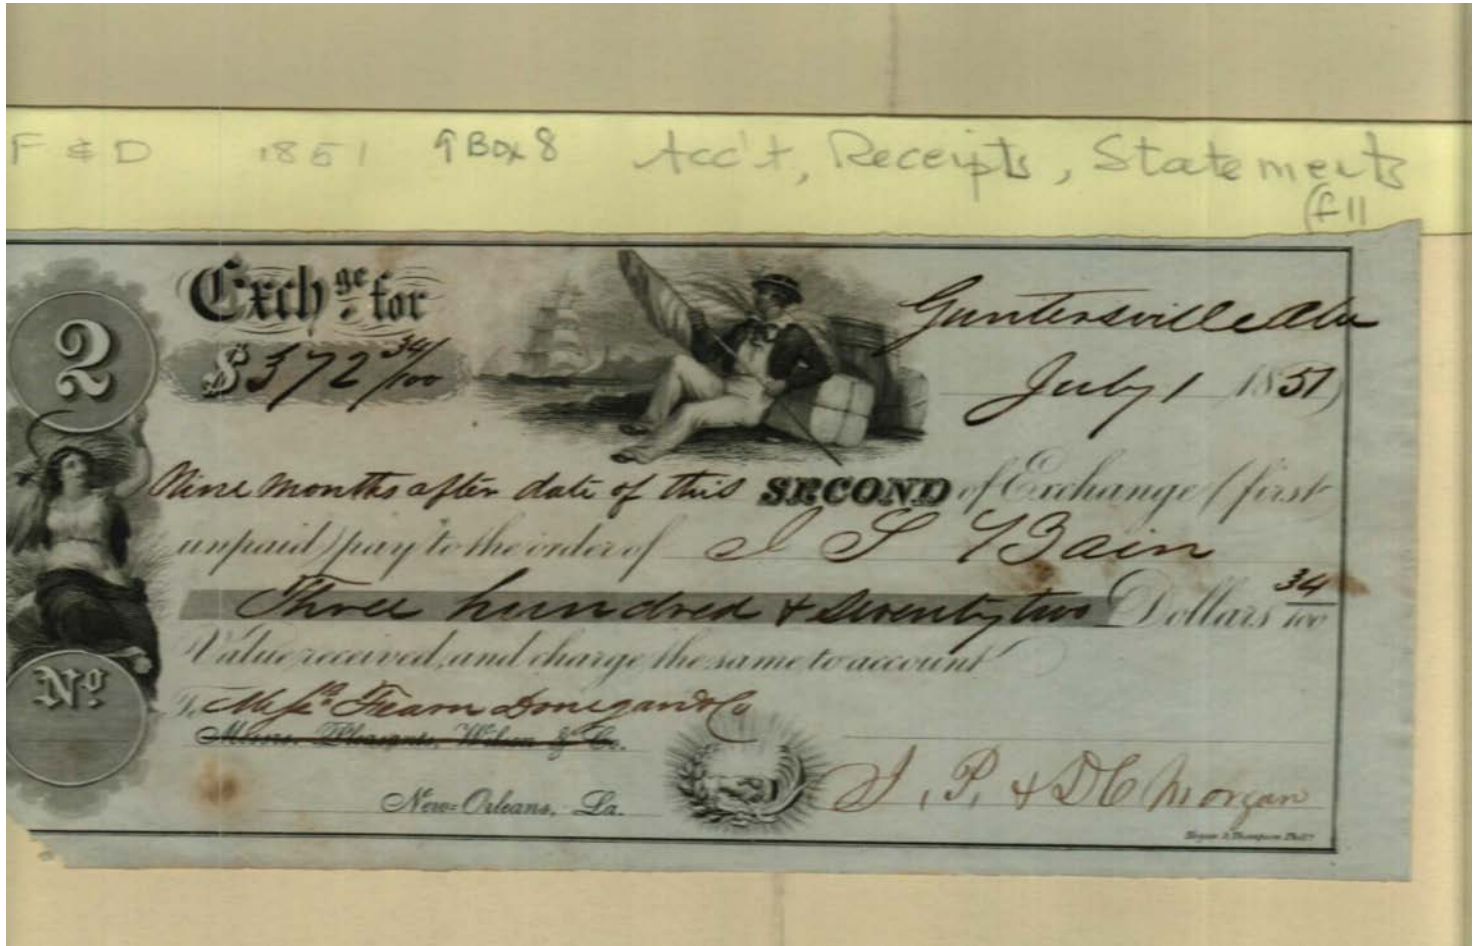 F & D 1851 ↑Box 8 Acc't, Receipts, Statements
(f 11
2
Exchge for
$372 34/100
Guntersville Ala
July 1 1851
Nine months after date of this SECOND of Exchange (first
unpaid) pay to the order of J S Bain
Three hundred & Seventy two Dollars 34/100
Value received, and charge the same to account
No
To Messrs Fearn Donegan & Co
Messrs. Pleasants, Wilson & Co.
New-Orleans, La.
J. P. & D C Morgan